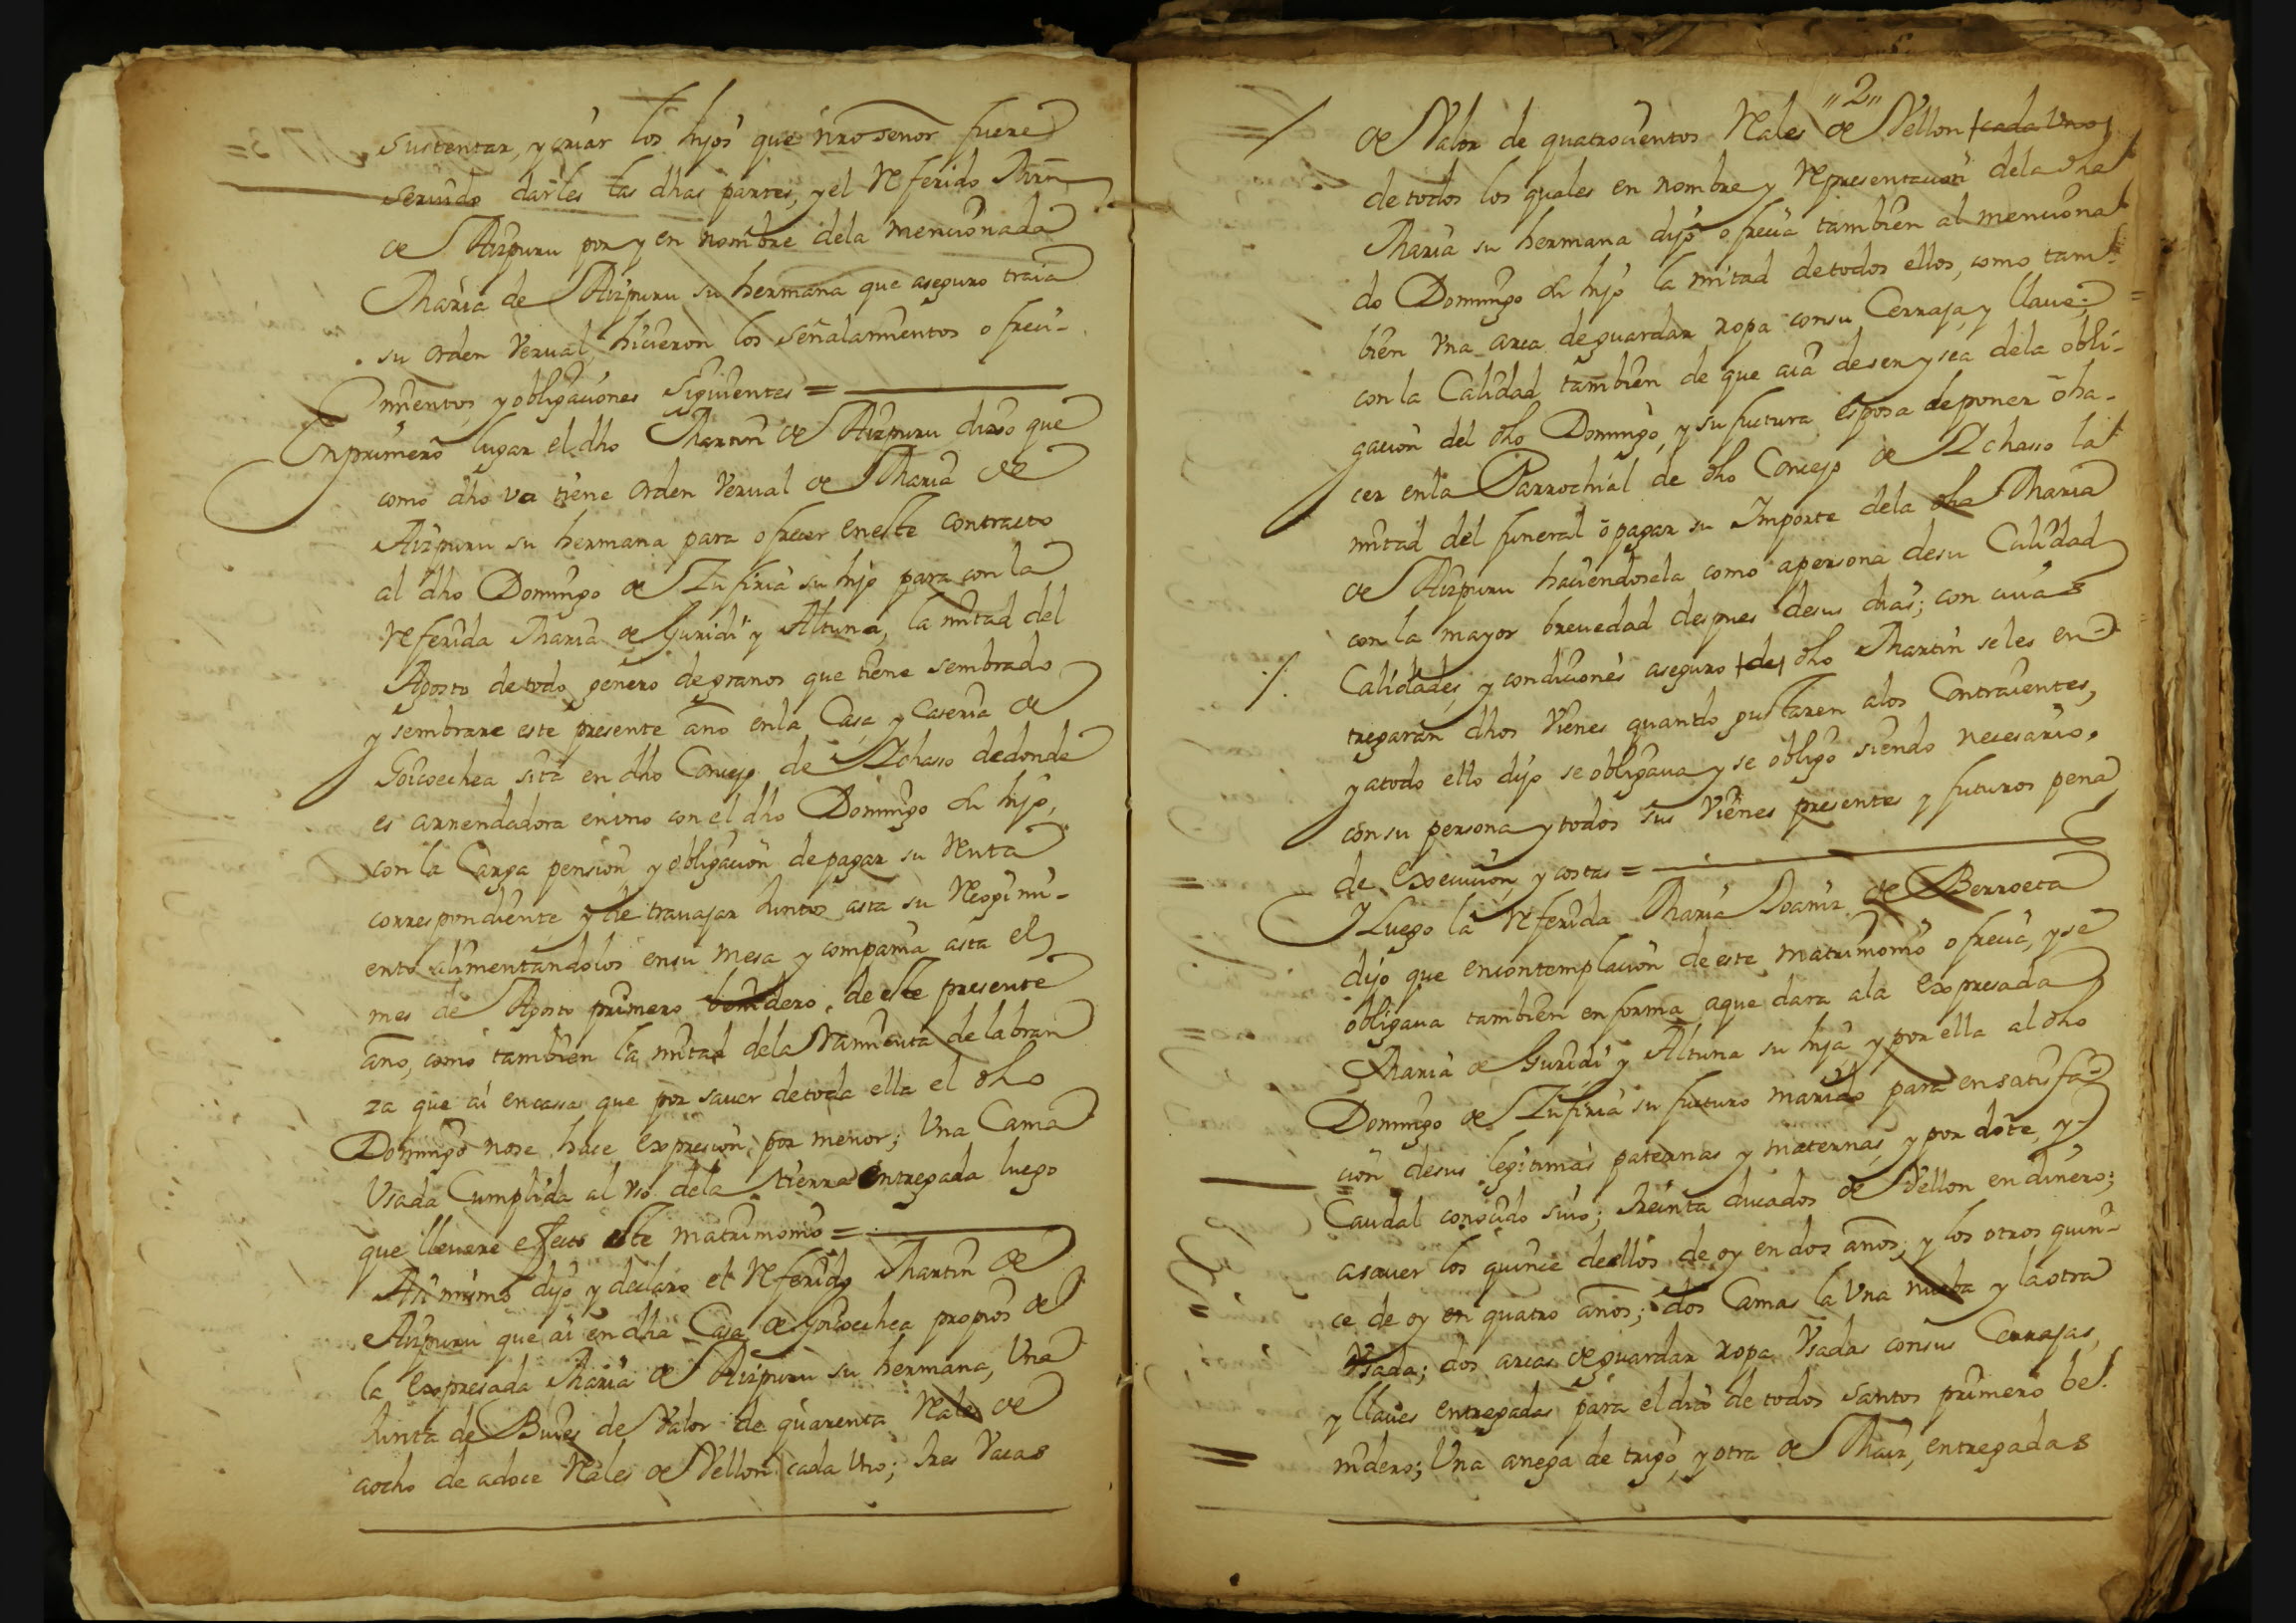 sustentar, y criar los hijos que nro señor fuere
seruido darles las dhas partes, y el Referido Mrn
de Aizpuru por y en nombre dela mencionada
Maria de Aizpuru su hermana que aseguro traia
su orden Verual, hicieron los señalamientos ofreci-
mientos, y obligaciones Siguientes =
En primero lugar el dho Martin de Aizpuru dixo que
como dho va tiene orden Verual de Maria de
Aizpuru su hermana para ofrecer en este contracto
al dho Domingo de Zufiria su hijo para con la
Referida Maria de Guridi y Altuna, la mitad del
Agosto de todo genero de granos que tiene sembrado
y sembrare este presente año en la Casa, y Caseria de
Goicoechea sita en dho Concejo de Ichasso de donde
es arrendadora en vno con el dho Domingo su hijo,
con la Carga pension, y obligacion de pagar su Renta
correspondiente y de trauajar Juntos asta su Recogimi-
ento alimentandolos en su mesa y compania asta el
mes de Agosto primero benidero, de este presente
año, como tambien la mitad dela Ramienta de labran
za que ai en cassa, que por sauer de toda ella el dho
Domingo no se hace Expresion por menor; Una Cama
Usada Cumplida al vso dela tierra entregada luego
que lleuare efecto este matrimonio =
Asi mismo dijo y declaro el Referido Martin de
Aizpuru que ai en dha Casa de Goicoechea propios de
la Expresada Maria de Aizpuru su hermana, Una
Junta de Bueies de Valor de quarenta Reales de
aocho de adoce Rales de Vellon cada Uno; tres Vacas
"2"
de Valor de quatrocientos Rales de Vellon cada Uno
de todos los quales en nombre y Representacion dela dha
Maria su hermana dijo ofrecia tambien al menciona
do Domingo su hijo la mitad de todos ellos, como tam
bien vna arca de guardar ropa con su Cerraja, y llaue;
con la Calidad tambien de que aia de ser y sea dela obli-
gacion del dho Domingo, y su futura esposa de poner o ha-
cer en la Parrochial de dho Concejo de Ichasso la
mitad del funeral o pagar su Importe dela dha Maria
de Aizpuru haciendosela como a persona de su Calidad
con la mayor breuedad despues de sus dias; con cuias
Calidades, y condiciones aseguro de dho Martin se les en
tregaran dhos Vienes quando gustaren a los Contraientes,
y a todo ello dijo se obligaua y se obligo siendo necesario,
con su persona y todos sus Vienes presentes y futuros pena
de Execucion, y costas =
Y Luego la Referida Maria Joaniz de Berroeta
dijo que en contemplacion de este matrimonio ofrecia, y se
obligaua tambien en forma a que dara a la Expresada
Maria de Guridi y Altuna su hija, y por ella al dho
Domingo de Zufiria su futuro marido para en satisfa
cion de sus legitimas paternas y maternas, y por dote, y
Caudal conocido suio; treinta ducados de Vellon en dinero;
a sauer los quince de ellos de oy en dos años; y los otros quin-
ce de oy en quatro años; dos Camas la Una nueba y la otra
Vsada; dos arcas de guardar ropa Vsadas con sus Cerrajas,
y llaues entregadas para el dia de todos Santos primero be
nidero; Una anega de trigo, y otra de Maiz, entregadas